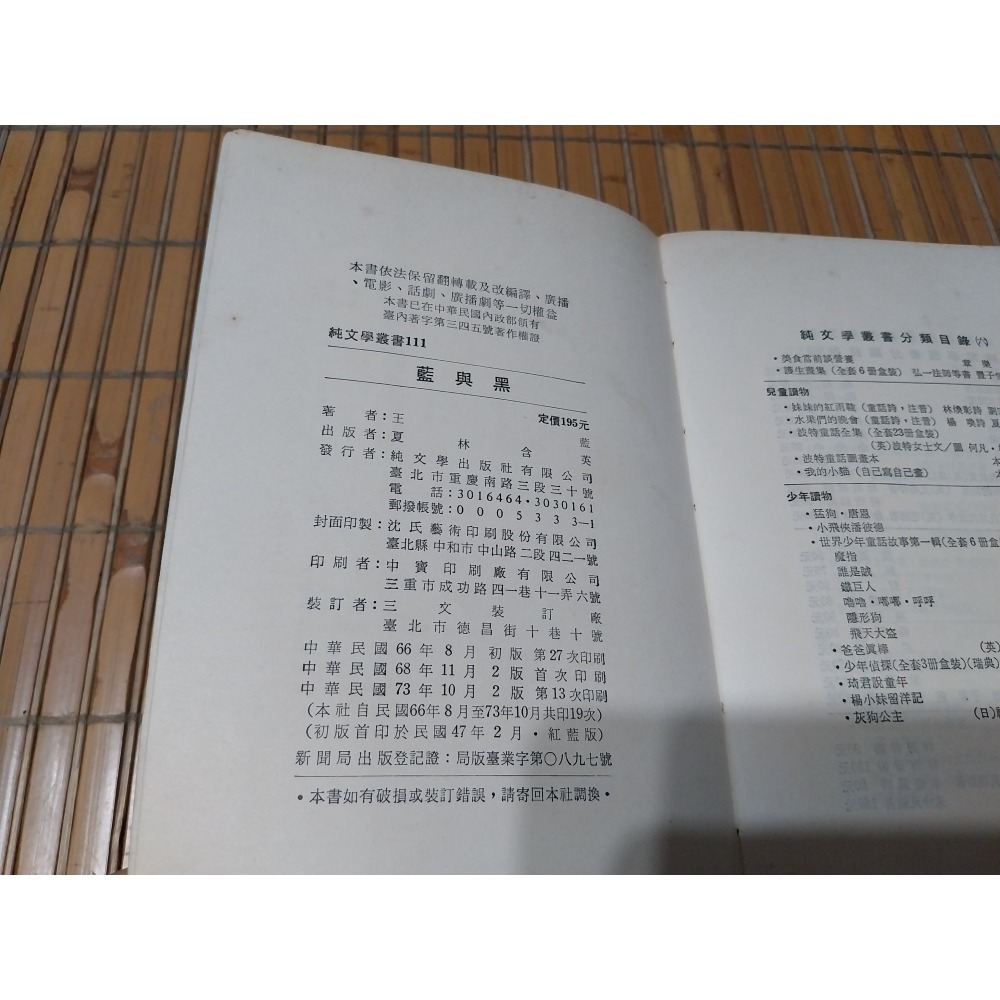 本書依法保留翻轉載及改編譯、廣播
、電影、話劇、廣播劇等一切權益
本書已在中華民國內政部領有
臺內著字第三四五號著作權證
純文學叢書111
藍與黑
定價195元
著者：王藍
出版者：夏林含英
發行者：純文學出版社有限公司
臺北市重慶南路三段三十號
電話：3016464・3030161
郵撥帳號：0005333－1
封面印製：沈氏藝術印刷股份有限公司
臺北縣中和市中山路二段四二一號
印刷者：中寶印刷廠有限公司
三重市成功路四一巷十一弄六號
裝訂者：三文裝訂廠
臺北市德昌街十巷十號
中華民國66年8月初版第27次印刷
中華民國68年11月2版首次印刷
中華民國73年10月2版第13次印刷
（本社自民國66年8月至73年10月共印19次）
（初版首印於民國47年2月・紅藍版）
新聞局出版登記證：局版臺業字第〇八九七號
・本書如有破損或裝訂錯誤，請寄回本社調換・
純文學叢書分類目錄㈥
・美食當前談營養 章樂
・護生畫集（全套6冊盒裝） 弘一法師等書 豐子
兒童讀物
・妹妹的紅雨鞋（童話詩，注音） 林煥彰詩
・水果們的晚會（童話詩，注音） 楊喚詩 夏
・波特童話全集（全套23冊盒裝）
(英)波特女士文／圖 何凡・
・波特童話圖畫本
・我的小貓（自己寫自己畫）
少年讀物
・猛狗・唐恩
・小飛俠潘彼德
・世界少年童話故事第一輯（全套6冊盒
魔指
誰是賊
鐵巨人
嚕嚕・嘟嘟・呼呼
隱形狗
飛天大盜
・爸爸真棒 (英)
・少年偵探（全套3冊盒裝）（瑞典）
・琦君說童年
・楊小妹留洋記
・灰狗公主 (日)